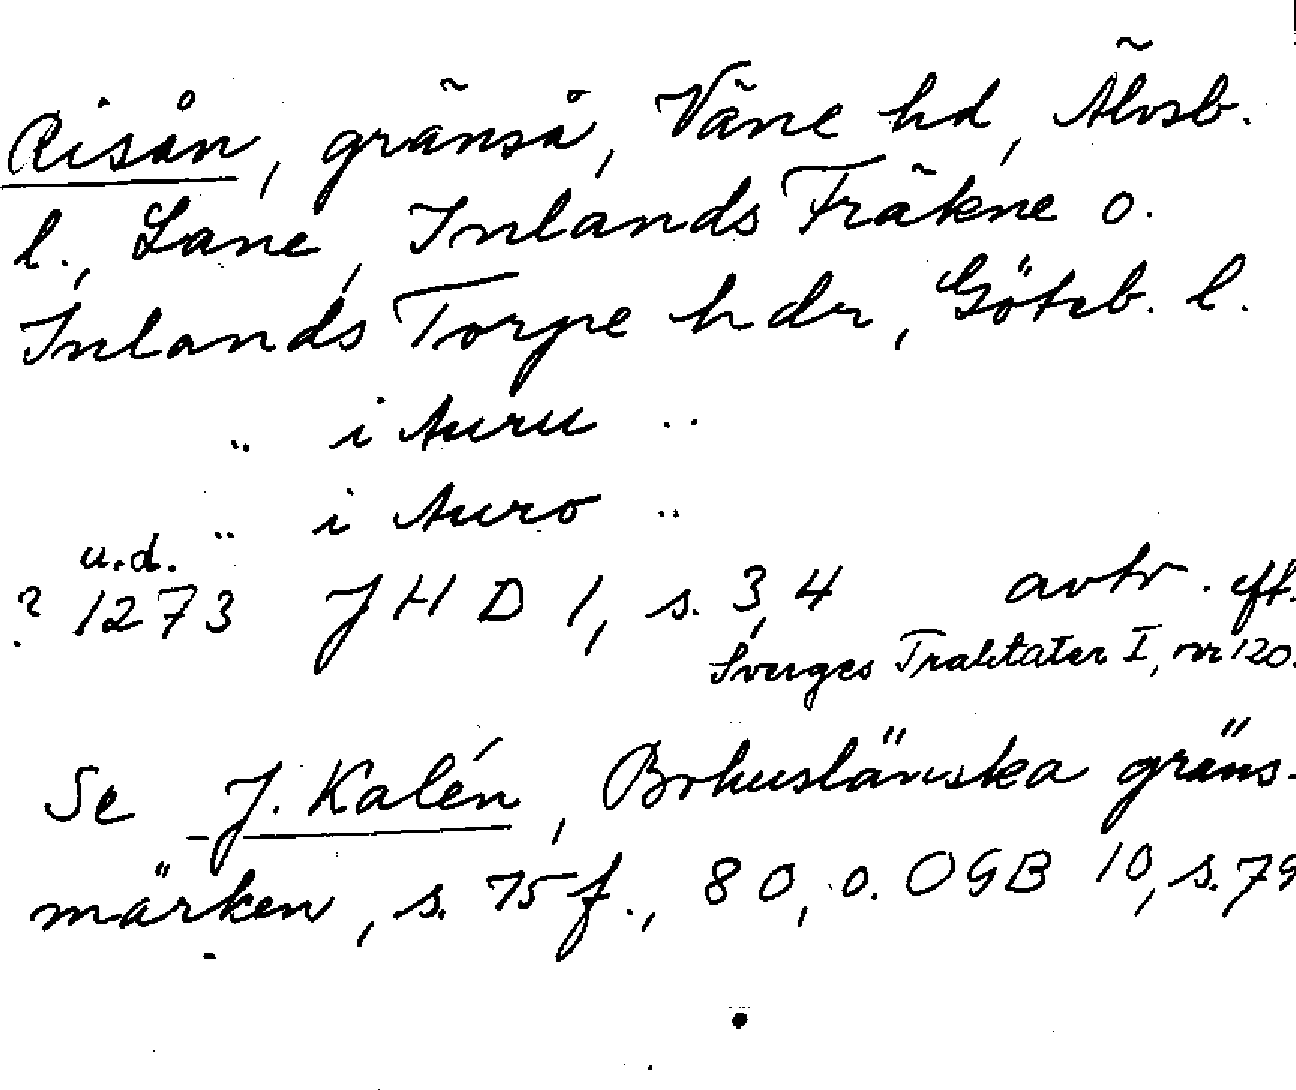 Risån, gränså, Väne hd, Älvsb.
l., Lane, Inlands Fräkne o.
Inlands Torpe hdr, Göteb. l.
.. i Auru ..
.. i Auro ..
u.d.
? 1273 JHD 1, s. 3, 4 avtr. eft.
Sverges Traktater I, nr 120.
Se J. Kalén, Bohuslänska gräns-
märken, s. 75 f., 80, o. OGB 10, s. 79